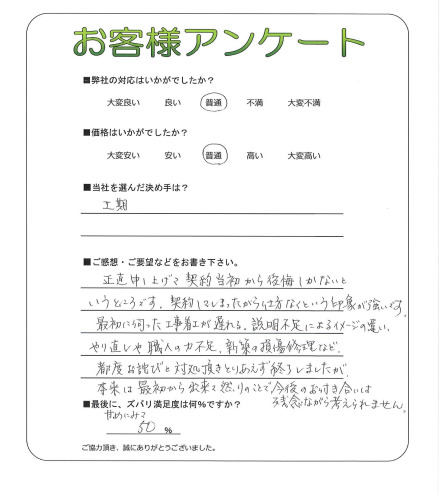 お客様アンケート
■弊社の対応はいかがでしたか？
大変良い 良い 普通 不満 大変不満
■価格はいかがでしたか？
大変安い 安い 普通 高い 大変高い
■当社を選んだ決め手は？
工期
■ご感想・ご要望などをお書き下さい。
正直申し上げて契約当初から後悔しかないと
いうところです。契約してしまったから仕方なくという印象が強いです。
最初に伺った工事着工が遅れる。説明不足によるイメージの違い、
やり直しや職人の力不足、新築の損傷修理など、
都度お詫びと対処頂きとりあえず終了しましたが、
本来は最初から出来て然りのことで今後のお付き合いは
残念ながら考えられません。
■最後に、ズバリ満足度は何%ですか？
甘めにみて
50 %
ご協力頂き、誠にありがとうございました。